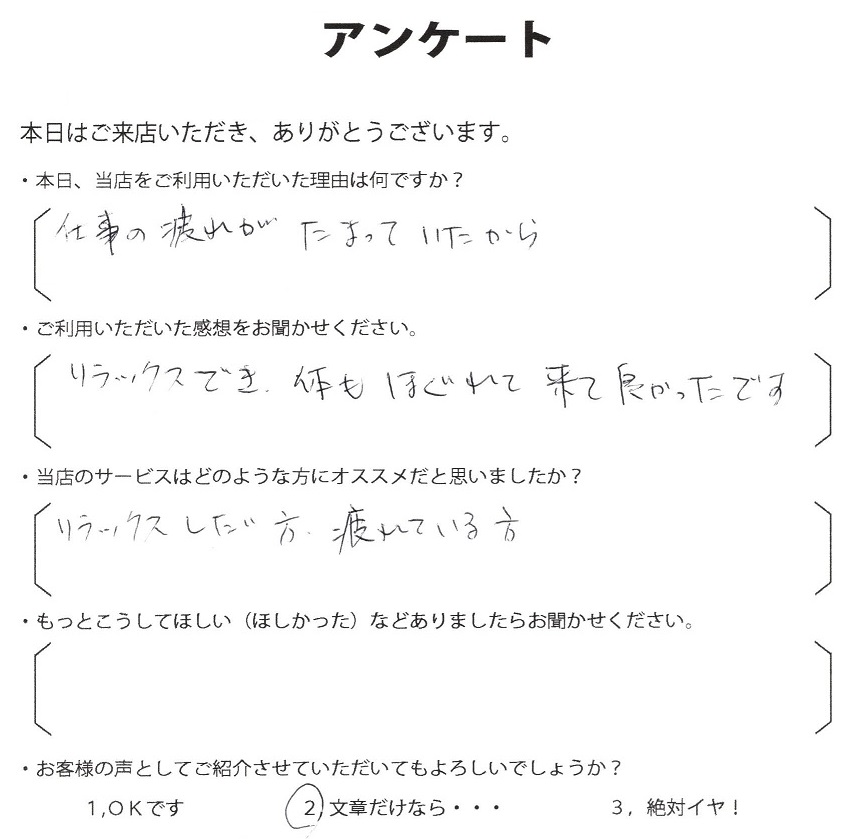 アンケート
本日はご来店いただき、ありがとうございます。
・本日、当店をご利用いただいた理由は何ですか？
仕事の疲れが たまって いたから
・ご利用いただいた感想をお聞かせください。
リラックスでき、体も ほぐれて 来て良かったです
・当店のサービスはどのような方にオススメだと思いましたか？
リラックスしたい方、疲れている方
・もっとこうしてほしい（ほしかった）などありましたらお聞かせください。
・お客様の声としてご紹介させていただいてもよろしいでしょうか？
1,OKです 2,文章だけなら・・・ 3，絶対イヤ！